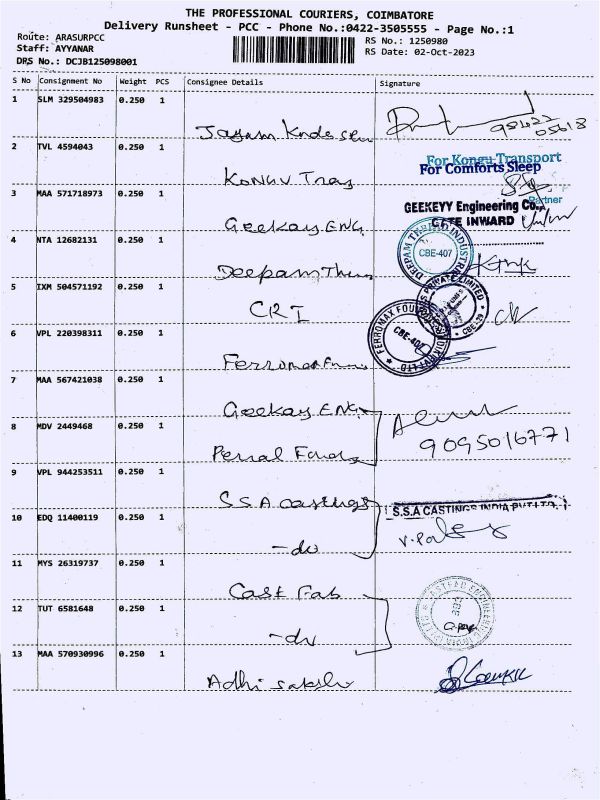 THE PROFESSIONAL COURIERS, COIMBATORE
Delivery Runsheet - PCC - Phone No.:0422-3505555 - Page No.:1
Route: ARASURPCC
RS No.: 1250980
Staff: AYYANAR
RS Date: 02-Oct-2023
DRS No.: DCJB125098001
S No Consignment No Weight PCS Consignee Details Signature
1 SLM 329504983 0.250 1
98422
05618
Jayam
2 TVL 4594043 0.250 1
For Kongu Transport
For Comforts Sleep
Kongu Trans
Partner
3 MAA 571718973 0.250 1
GEEKEYY Engineering Co.,
GATE INWARD
Geekay ENG
4 NTA 12682131 0.250 1
DEEPAM THERMO INDUSTRIES
CBE-407
Deepam
5 IXM 504571192 0.250 1
PRIVATE LIMITED
CBE-29
CRI
6 VPL 220398311 0.250 1
FERROMAX
CBE-407
7 MAA 567421038 0.250 1
Geekay ENG
8 MDV 2449468 0.250 1
9095016771
9 VPL 944253511 0.250 1
S.S.A castings
S.S.A CASTINGS INDIA PVT LTD.
10 EDQ 11400119 0.250 1
-do
11 MYS 26319737 0.250 1
Cast Fab
12 TUT 6581648 0.250 1
-do
13 MAA 570930996 0.250 1
Adhi